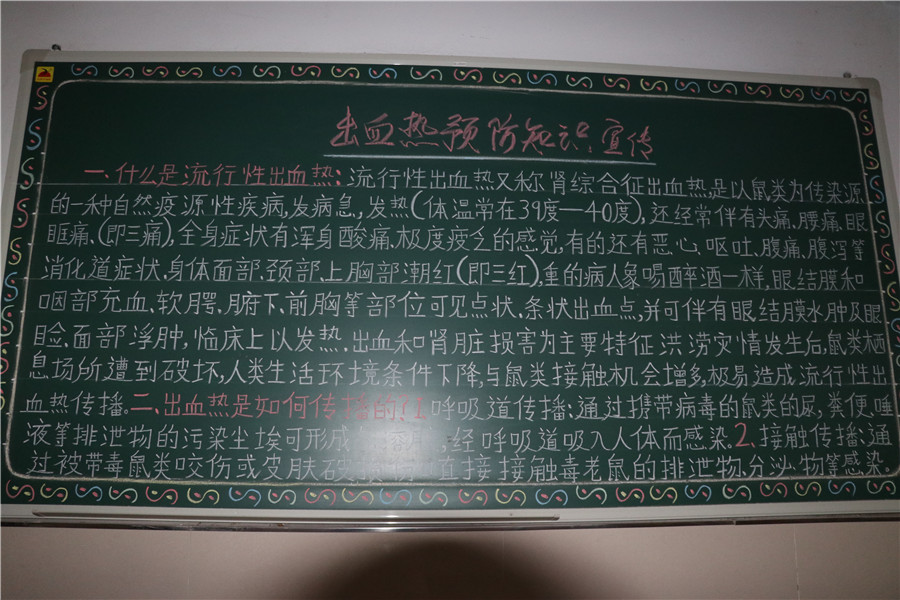 出血热预防知识宣传
一、什么是流行性出血热:流行性出血热又称肾综合征出血热,是以鼠类为传染源
的一种自然疫源性疾病,发病急,发热(体温常在39度—40度),还经常伴有头痛、腰痛、眼
眶痛、(即三痛),全身症状有浑身酸痛、极度疲乏的感觉,有的还有恶心、呕吐、腹痛、腹泻等
消化道症状,身体面部、颈部、上胸部潮红(即三红),重的病人象喝醉酒一样,眼结膜和
咽部充血、软腭、腋下、前胸等部位可见点状、条状出血点,并可伴有眼结膜水肿及眼
睑、面部浮肿,临床上以发热、出血和肾脏损害为主要特征洪涝灾情发生后,鼠类栖
息场所遭到破坏,人类生活环境条件下降,与鼠类接触机会增多,极易造成流行性出
血热传播。二、出血热是如何传播的?1.呼吸道传播:通过携带病毒的鼠类的尿,粪便、唾
液等排泄物的污染尘埃可形成,经呼吸道吸入人体而感染.2.接触传播:通
过被带毒鼠类咬伤或皮肤破直接接触毒老鼠的排泄物、分泌物等感染。